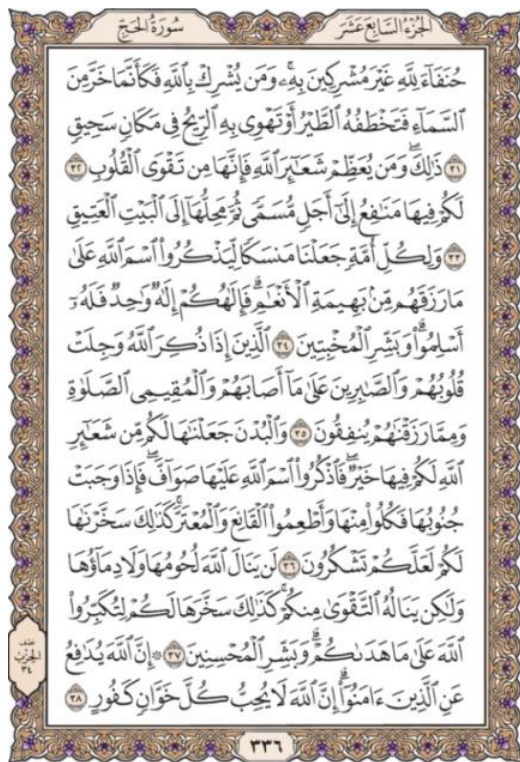 سُورَةُ الحَجِّ
الجُزْءُ السَّابِعَ عَشَرَ
حُنَفَآءَ لِلَّهِ غَيْرَ مُشْرِكِينَ بِهِۦۚ وَمَن يُشْرِكْ بِٱللَّهِ فَكَأَنَّمَا خَرَّ مِنَ
ٱلسَّمَآءِ فَتَخْطَفُهُ ٱلطَّيْرُ أَوْ تَهْوِى بِهِ ٱلرِّيحُ فِى مَكَانٍ سَحِيقٍ
٣١ ذَٰلِكَۖ وَمَن يُعَظِّمْ شَعَٰٓئِرَ ٱللَّهِ فَإِنَّهَا مِن تَقْوَى ٱلْقُلُوبِ ٣٢
لَكُمْ فِيهَا مَنَٰفِعُ إِلَىٰٓ أَجَلٍ مُّسَمًّى ثُمَّ مَحِلُّهَآ إِلَى ٱلْبَيْتِ ٱلْعَتِيقِ
٣٣ وَلِكُلِّ أُمَّةٍ جَعَلْنَا مَنسَكًا لِّيَذْكُرُوا۟ ٱسْمَ ٱللَّهِ عَلَىٰ
مَا رَزَقَهُم مِّنۢ بَهِيمَةِ ٱلْأَنْعَٰمِۗ فَإِلَٰهُكُمْ إِلَٰهٌ وَٰحِدٌ فَلَهُۥٓ
أَسْلِمُوا۟ۗ وَبَشِّرِ ٱلْمُخْبِتِينَ ٣٤ ٱلَّذِينَ إِذَا ذُكِرَ ٱللَّهُ وَجِلَتْ
قُلُوبُهُمْ وَٱلصَّٰبِرِينَ عَلَىٰ مَآ أَصَابَهُمْ وَٱلْمُقِيمِى ٱلصَّلَوٰةِ
وَمِمَّا رَزَقْنَٰهُمْ يُنفِقُونَ ٣٥ وَٱلْبُدْنَ جَعَلْنَٰهَا لَكُم مِّن شَعَٰٓئِرِ
ٱللَّهِ لَكُمْ فِيهَا خَيْرٌۖ فَٱذْكُرُوا۟ ٱسْمَ ٱللَّهِ عَلَيْهَا صَوَآفَّۖ فَإِذَا وَجَبَتْ
جُنُوبُهَا فَكُلُوا۟ مِنْهَا وَأَطْعِمُوا۟ ٱلْقَانِعَ وَٱلْمُعْتَرَّۚ كَذَٰلِكَ سَخَّرْنَٰهَا
لَكُمْ لَعَلَّكُمْ تَشْكُرُونَ ٣٦ لَن يَنَالَ ٱللَّهَ لُحُومُهَا وَلَا دِمَآؤُهَا
وَلَٰكِن يَنَالُهُ ٱلتَّقْوَىٰ مِنكُمْۚ كَذَٰلِكَ سَخَّرَهَا لَكُمْ لِتُكَبِّرُوا۟
ٱللَّهَ عَلَىٰ مَا هَدَىٰكُمْۗ وَبَشِّرِ ٱلْمُحْسِنِينَ ٣٧ ۞ إِنَّ ٱللَّهَ يُدَٰفِعُ
عَنِ ٱلَّذِينَ ءَامَنُوٓا۟ۗ إِنَّ ٱللَّهَ لَا يُحِبُّ كُلَّ خَوَّانٍ كَفُورٍ ٣٨
نصف
الحزب
٣٤
٣٣٦